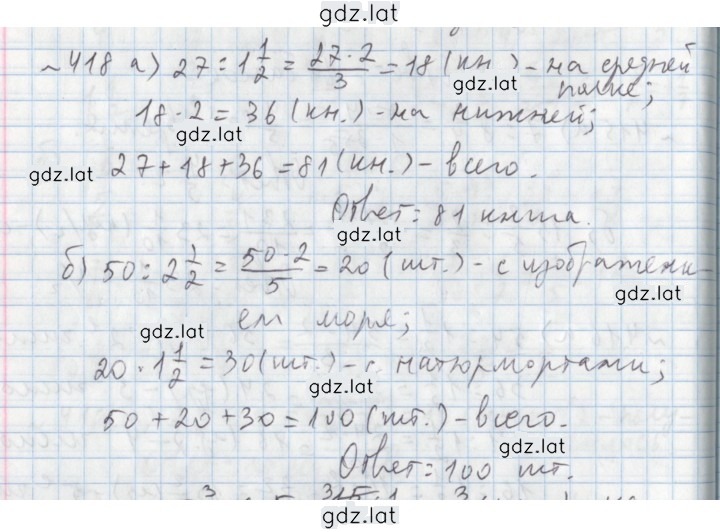 gdz.lat
№418 а) 27 : 1 1/2 = 27·2/3 = 18 (кн.) - на средней
gdz.lat
полке;
18 · 2 = 36 (кн.) - на нижней;
gdz.lat
gdz.lat 27 + 18 + 36 = 81 (кн.) - всего.
Ответ: 81 книга.
gdz.lat
б) 50 : 2 1/2 = 50·2/5 = 20 (шт.) - с изображени-
gdz.lat
ем моря;
gdz.lat
20 · 1 1/2 = 30 (шт.) - с натюрмортами;
gdz.lat
50 + 20 + 30 = 100 (шт.) - всего.
gdz.lat
Ответ: 100 шт.
gdz.lat